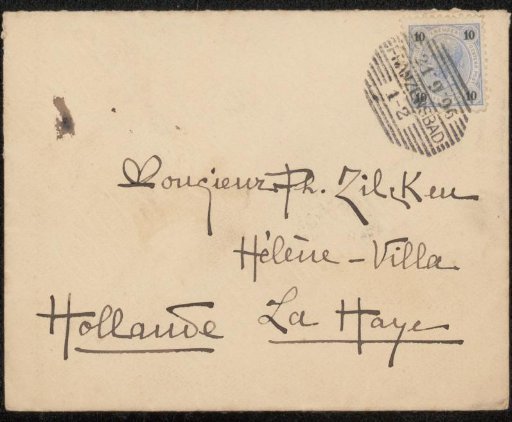 10 10
10 10
FRANZENSBAD
21 9 96
1-2
Monsieur Ph. Zilcken
Hélène-Villa
Hollande La Haye